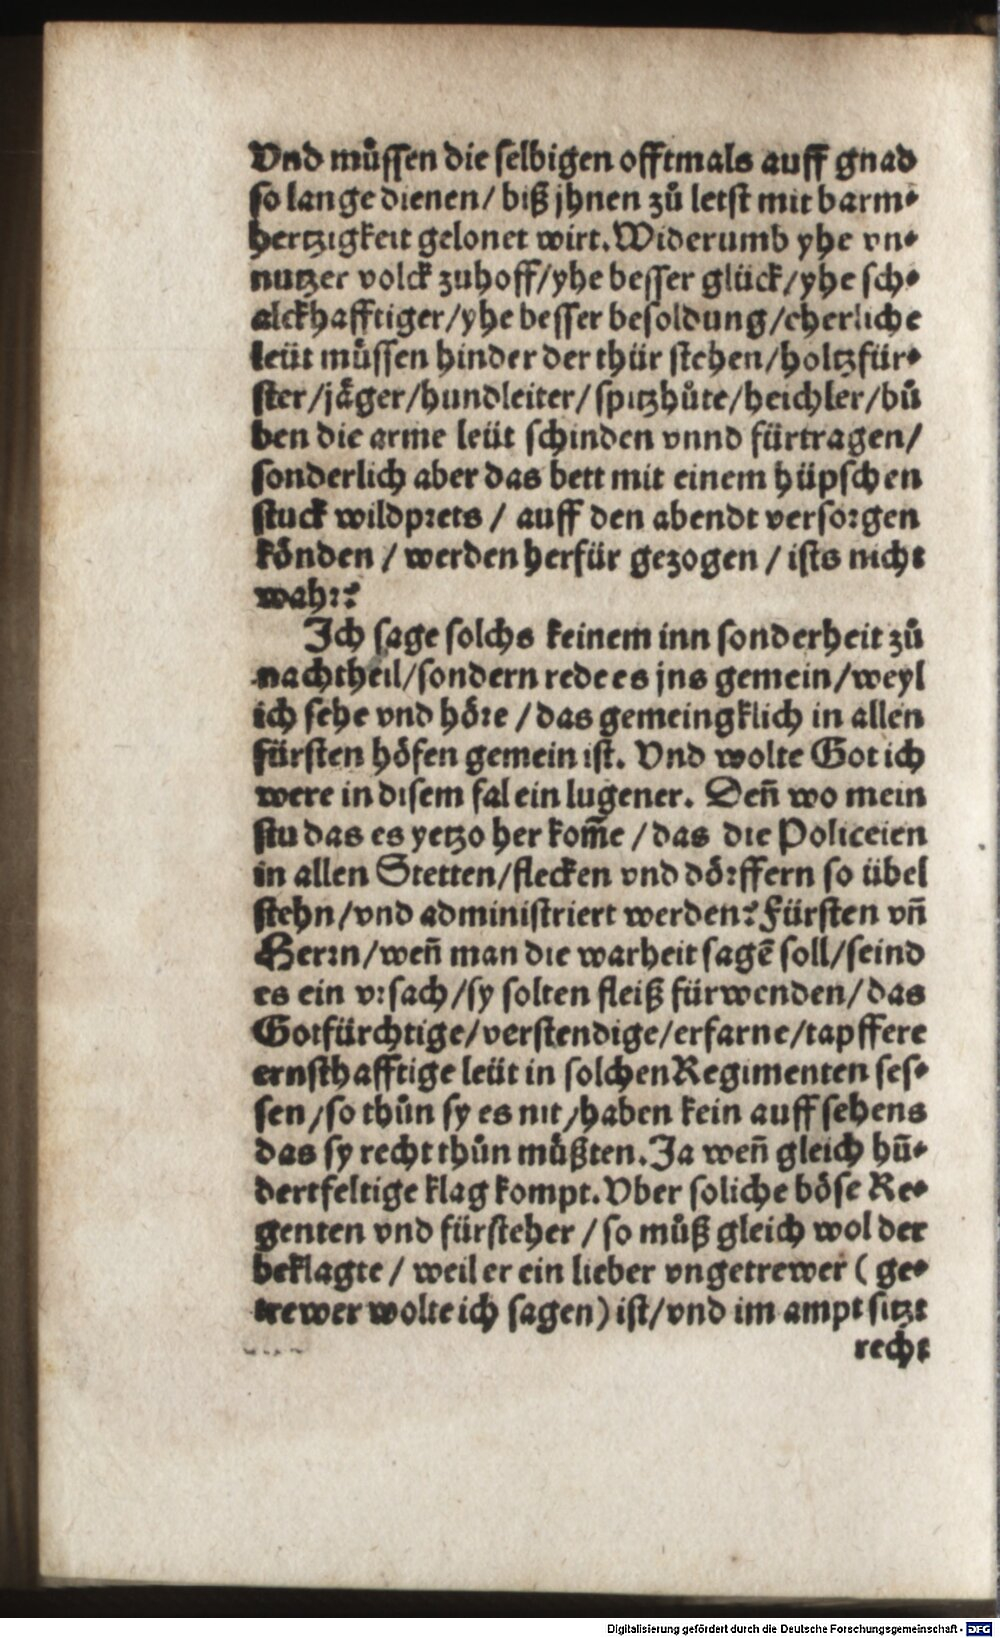 Vnd muͤssen die selbigen offtmals auff gnad
so lange dienen/ biß jhnen zuͤ letst mit barm⸗
hertzigkeit gelonet wirt. Widerumb yhe vn⸗
nutzer volck zuhoff/yhe besser glück/yhe sch⸗
alckhafftiger/yhe besser besoldung/eherliche
leüt muͤssen hinder der thür stehen/holtzfür⸗
ster/jaͤger/hundleiter/ spitzhuͤte/heichler/buͤ
ben die arme leüt schinden vnnd fürtragen/
sonderlich aber das bett mit einem hüpschen
stuck wildprets / auff den abendt versorgen
koͤnden / werden herfür gezogen / ists nicht
wahr?
Ich sage solchs keinem inn sonderheit zuͤ
nachtheil/sondern rede es jns gemein/weyl
ich sehe vnd hoͤre / das gemeingklich in allen
fürsten hoͤfen gemein ist. Vnd wolte Got ich
were in disem fal ein lugener. Deñ wo mein
stu das es yetzo her kom̃e / das die Policeien
in allen Stetten/flecken vnd doͤrffern so übel
stehn/vnd administriert werden? Fürsten vñ
Herrn/weñ man die warheit sagẽ soll/seind
es ein vrsach/sy solten fleiß fürwenden/das
Gotfürchtige/verstendige/erfarne/tapffere
ernsthafftige leüt in solchen Regimenten ses⸗
sen/so thuͤn sy es nit/haben kein auff sehens
das sy recht thuͤn muͤßten. Ja weñ gleich hũ⸗
dertfeltige klag kompt. Vber soliche boͤse Re⸗
genten vnd fürsteher / so muͤß gleich wol der
beklagte / weil er ein lieber vngetrewer ( ge⸗
trewer wolte ich sagen) ist/vnd im ampt sitzt
recht
Digitalisierung gefördert durch die Deutsche Forschungsgemeinschaft - DFG